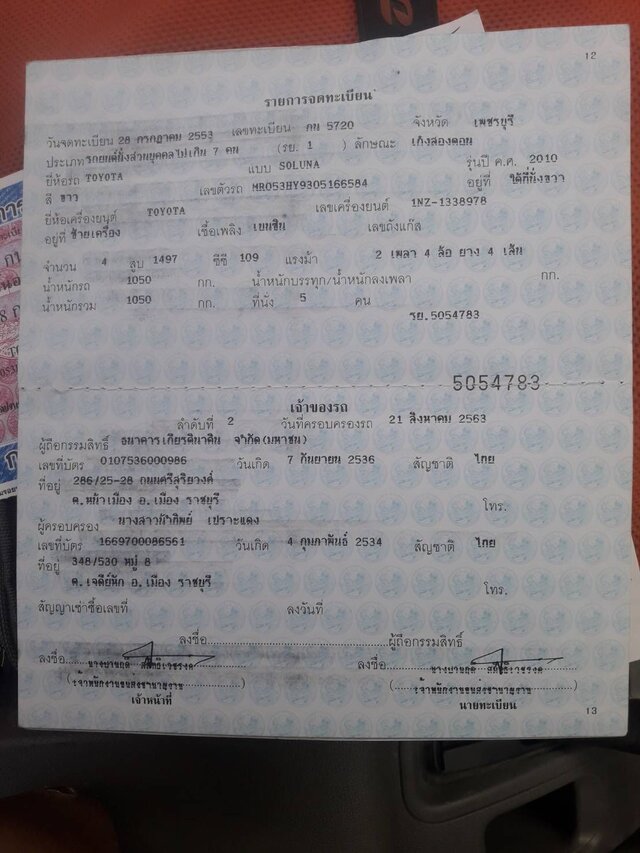 12
รายการจดทะเบียน
วันจดทะเบียน 28 กรกฎาคม 2553 เลขทะเบียน กน 5720 จังหวัด เพชรบุรี
ประเภท รถยนต์นั่งส่วนบุคคลไม่เกิน 7 คน (รย. 1 ) ลักษณะ เก๋งสองตอน
ยี่ห้อรถ TOYOTA แบบ SOLUNA รุ่นปี ค.ศ. 2010
สี ขาว เลขตัวรถ MR053HY9305166584 อยู่ที่ ใต้ที่นั่งขวา
ยี่ห้อเครื่องยนต์ TOYOTA เลขเครื่องยนต์ 1NZ-1338978
อยู่ที่ ซ้ายเครื่อง เชื้อเพลิง เบนซิน เลขถังแก๊ส
จำนวน 4 สูบ 1497 ซีซี 109 แรงม้า 2 เพลา 4 ล้อ ยาง 4 เส้น
น้ำหนักรถ 1050 กก. น้ำหนักบรรทุก/น้ำหนักลงเพลา กก.
น้ำหนักรวม 1050 กก. ที่นั่ง 5 คน
รย.5054783
5054783
เจ้าของรถ
ลำดับที่ 2 วันที่ครอบครองรถ 21 สิงหาคม 2563
ผู้ถือกรรมสิทธิ์ ธนาคารเกียรตินาคิน จำกัด(มหาชน)
เลขที่บัตร 0107536000986 วันเกิด 7 กันยายน 2536 สัญชาติ ไทย
ที่อยู่ 286/25-28 ถนนศรีสุริยวงศ์
ต.หน้าเมือง อ.เมือง ราชบุรี
โทร.
ผู้ครอบครอง นางสาว เปราะแดง
เลขที่บัตร 1669700086561 วันเกิด 4 กุมภาพันธ์ 2534 สัญชาติ ไทย
ที่อยู่ 348/530 หมู่ 8
ต.เจดีย์หัก อ.เมือง ราชบุรี
โทร.
สัญญาเช่าซื้อเลขที่ ลงวันที่
ลงชื่อ ผู้ถือกรรมสิทธิ์
ลงชื่อ ลงชื่อ
เจ้าหน้าที่ นายทะเบียน
13